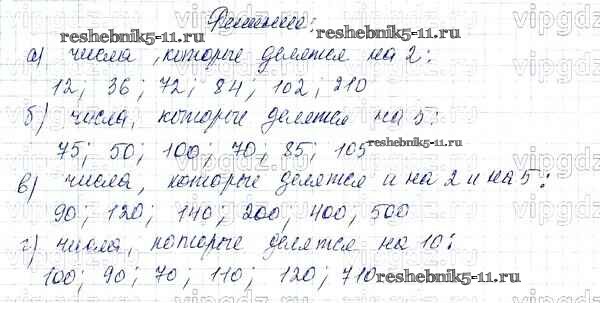 Решение:
reshebnik5-11.ru
а) числа, которые делятся на 2:
12; 36; 72; 84; 102; 210
б) числа, которые делятся на 5:
75; 50; 100; 70; 85; 105
reshebnik5-11.ru
в) числа, которые делятся и на 2 и на 5:
90; 120; 140; 200; 400; 500
г) числа, которые делятся на 10:
100; 90; 70; 110; 120; 710
reshebnik5-11.ru
vipgdz